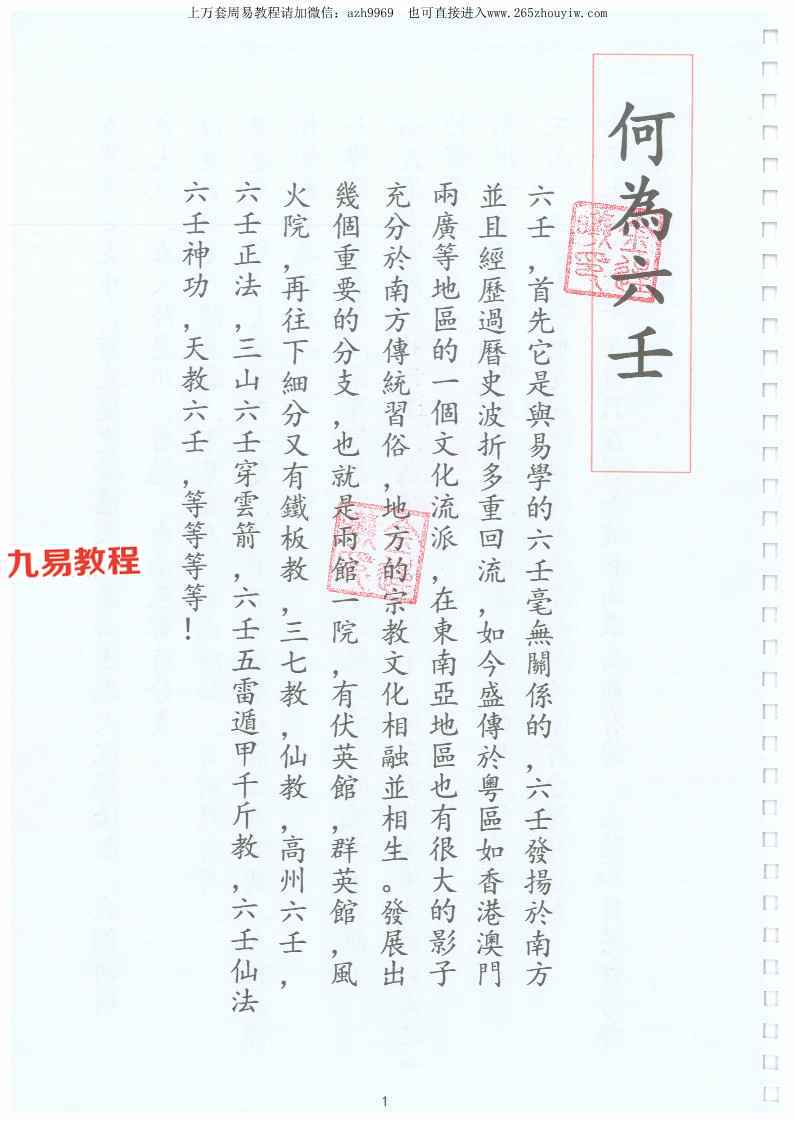 上万套周易教程请加微信：azh9969　也可直接进入www.265zhouyiw.com
何為六壬
六壬,首先它是與易學的六壬毫無關係的,六壬發揚於南方
並且經歷過曆史波折多重回流,如今盛傳於粵區如香港澳門
兩廣等地區的一個文化流派,在東南亞地區也有很大的影子
充分於南方傳統習俗,地方的宗教文化相融並相生。發展出
幾個重要的分支,也就是兩館一院,有伏英館,群英館,風
火院,再往下細分又有鐵板教,三七教,仙教,高州六壬,
六壬正法,三山六壬穿雲箭,六壬五雷遁甲千斤教,六壬仙法
六壬神功,天教六壬,等等等等!
九易教程
1